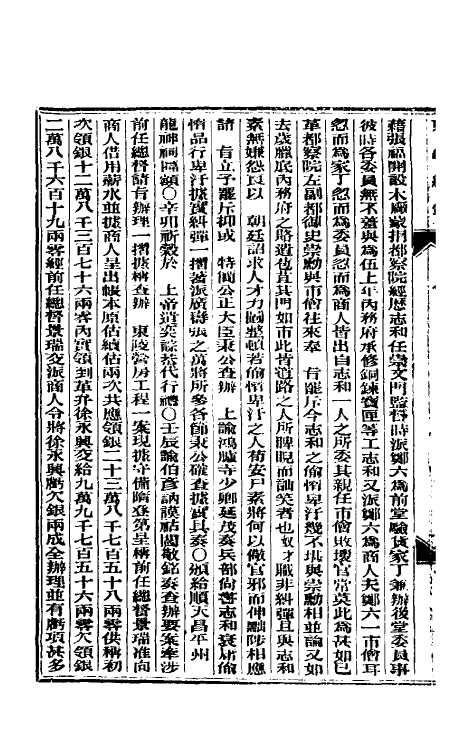 藉張福開設木廠蒙捐都察院經歷志和任崇文門監督時派鄒六為前堂驗貨家丁兼辦後堂委員事
彼時各委員無不羞與為伍上年內務府承修銅鍊寶匣等工志和又派鄒六為商人夫鄒六一市儈耳
忽而為家丁忽而為委員忽而為商人皆出自志和一人之所委其親任市儈敗壞官常莫此為甚如已
革都察院左副都御史崇勳與市儈往來奉　旨罷斥今志和之偷惰卑汙幾不堪與崇勳相並論又如
去歲臘底內務府之賂遺苞苴其門如市此皆道路之人所睥睨而訕笑者也奴才職非糾彈且與志和
素無嫌怨良以　朝廷詔求人才力圖整頓若偷惰卑汙之人苟安尸素將何以儆官邪而伸黜陟相應
請　旨立予罷斥抑或　特簡公正大臣秉公查辦　上諭鴻臚寺少卿延茂奏兵部尚書志和衰庸偷
惰品行卑汙據實糾彈一摺著派廣壽張之萬將所參各節秉公確查據實具奏〇頒給順天昌平州
龍神祠匾額〇辛卯祈穀於　上帝遣奕譞恭代行禮〇壬辰諭伯彥訥謨祜閻敬銘奏查辦要案牽涉
前任總督請旨辦理一摺據稱查辦　東陵營房工程一案現據守備隋登第呈稱前任總督景瑞准向
商人借用薪水並據商人呈出帳本原估續估兩次共應領銀二十三萬八千七百五十八兩零供稱初
次領銀十二萬八千三百七十六兩零內實領到革弁徐永興交給九萬九千七百五十六兩零欠領銀
二萬八千六百十九兩零經前任總督景瑞交派商人令將徐永興虧欠銀兩成全辦理並有虧項甚多